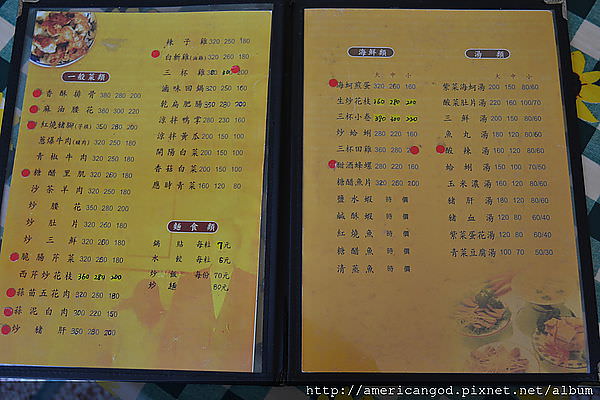 一般菜類
香酥排骨 380 280 200
麻油腰花 360 300 220
紅燒豬腳(芋頭) 350 280 200
蔥爆牛肉(豬肉) 320 250 180
青椒牛肉 320 250 180
糖醋里肌 320 250 180
炒茶羊肉 320 250 180
炒腰花 350 280 200
炒肚片 320 250 180
炒三鮮 320 250 180
脆腸芹菜 320 250 180
西芹炒花枝 360 280 200
蒜苗五花肉 320 250 180
蒜泥白肉 300 220 150
炒豬肝 350 280 200
辣子雞 320 250 180
白斬雞(油雞) 320 250 180
三杯雞
滷味回鍋 320 250 180
乾扁肥腸 350 280 200
涼拌鴨掌 220 160
涼拌黃瓜 200 150
開陽白菜 200 150
香菇白菜 200 150
應時青菜 160 120 80
麵食類
鍋貼 每粒 7元
水餃 每粒 5元
炒飯 每份 70元
炒麵 80元
海鮮類
大 中 小
海蚵煎蛋 320 260 160
生炒花枝 360 280 200
三杯小卷 380 300 200
炒蛤蜊 280 220 160
三杯田雞 360 280
甜酒蜂螺 280 220 160
糖醋魚片 320 260 200
鹽水蝦 時價
鹹酥蝦 時價
紅燒魚 時價
糖醋魚 時價
清蒸魚 時價
湯類
大 中 小
紫菜海蚵湯 200 150 80/50
酸菜肚片湯 220 160 100/70
三鮮湯 200 150 80/50
魚丸湯 180 120 80/60
酸辣湯 180 120 80/60
蛤蜊湯 150 100 70/50
玉米濃湯 160 120 80/60
豬肝湯 180 120 80/60
豬血湯 120 80 60/40
紫菜蛋花湯 120 80 60/40
青菜豆腐湯 100 70 50/30
http://americangod.pixnet.net/album